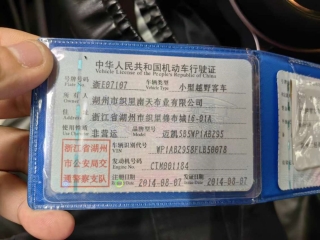 中华人民共和国机动车行驶证
Vehicle License of the People's Republic of China
号牌号码 浙E07107 车辆类型 小型越野客车
Plate No. Vehicle Type
所有人 湖州市织里南天布业有限公司
Owner
住址 浙江省湖州市织里锦布城16-01A
Address
使用性质 非营运 品牌型号
Use Character Model
浙江省湖州
市公安局交
通警察支队
车辆识别代号
VIN
发动机号码
Engine No.
注册日期 2014-08-07 发证日期 2014-08-07